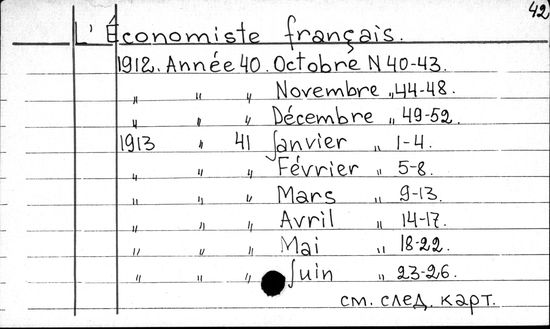 42
L'Économiste français.
1912. Année 40. Octobre N 40-43.
„ „ „ Novembre „ 44-48.
„ „ „ Décembre „ 49-52.
1913 „ 41 Janvier „ 1-4.
„ „ „ Février „ 5-8.
„ „ „ Mars „ 9-13.
„ „ „ Avril „ 14-17.
„ „ „ Mai „ 18-22.
„ „ „ Juin „ 23-26.
см. след. карт.